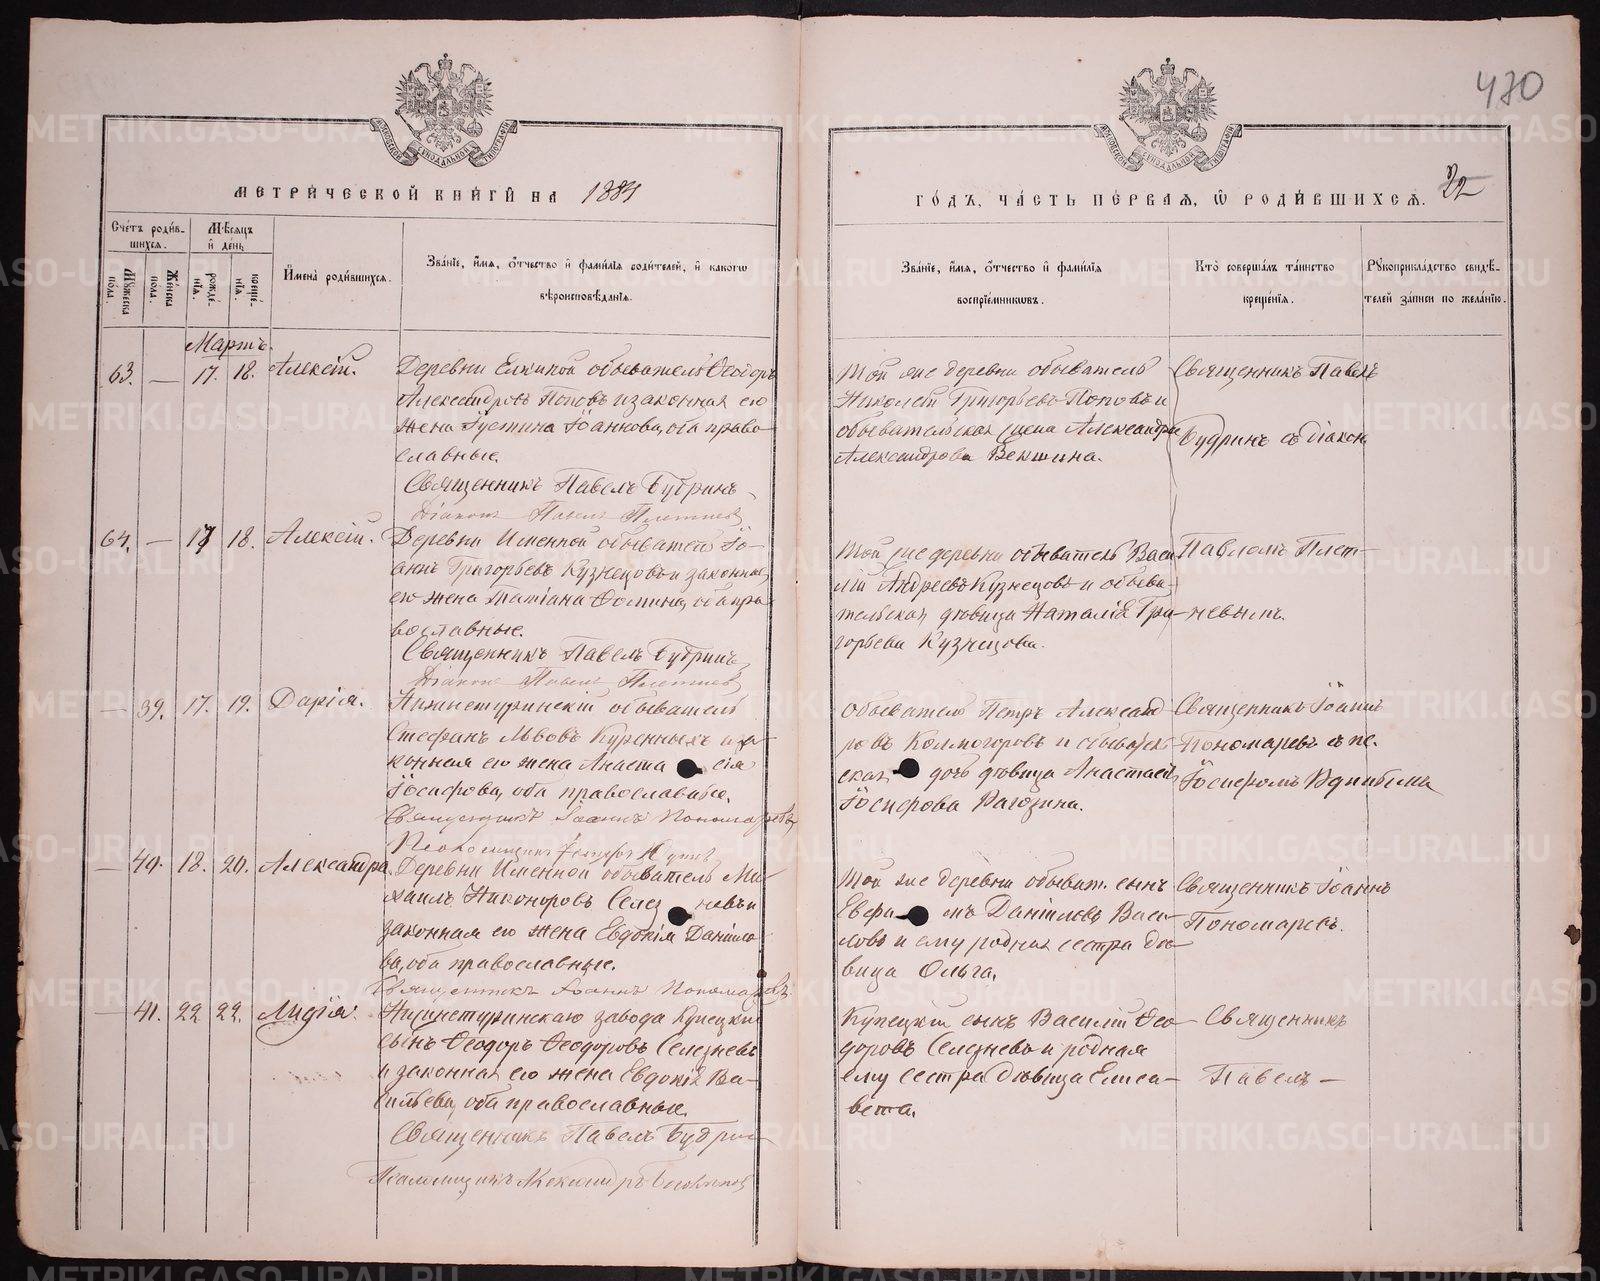 470
МЕТРИ́ЧЕСКОЙ КНИ́ГИ НА 1884
ГО́ДЪ, ЧА́СТЬ ПЕ́РВАѦ, Ѿ РОДИ́ВШИХСѦ. 22
МОСКОВСКОЙ СИНОДАЛЬНОЙ ТИПОГРАФІИ
МОСКОВСКОЙ СИНОДАЛЬНОЙ ТИПОГРАФІИ
Сче́тъ роди́вшихсѧ.
Мꙋ́жеска по́ла.
Же́нска по́ла.
Мѣ́сѧцъ и҆ де́нь
рожде́нїѧ.
креще́нїѧ.
И҆мена̀ роди́вшихсѧ.
Зва́нїе, и҆́мѧ, ѻ҆́тчество и҆ фами́лїѧ роди́телей, и҆ какогѡ
вѣроисповѣ́данїѧ.
Зва́нїе, и҆́мѧ, ѻ҆́тчество и҆ фами́лїѧ
воспрїе́мникѡвъ.
Кто̀ соверша́лъ та́инство
креще́нїѧ.
Рꙋкоприкла́дство свидѣ́-
телей за́писи по жела́нїю.
Мартъ.
63. — 17. 18. Алексій.
Деревни Елкиной обыватель Ѳеодоръ
Александровъ Поповъ и законная его
жена Іустина Іоаннова, оба право-
славные.
Священникъ Павелъ Будринъ
Діаконъ Павелъ Плетневъ
Той же деревни обыватель
Николай Григорьевъ Поповъ и
обывательская жена Александра
Александрова Векшина.
Священникъ Павелъ
Будринъ съ діакон.
64. — 17 18. Алексій.
Деревни Именной обыватель Іо-
аннъ Григорьевъ Кузнецовъ и законная
его жена Татіана Ѳомина, оба пра-
вославные.
Священникъ Павелъ Будринъ
Діаконъ Павелъ Плетневъ
Той же деревни обыватель Васи-
лій Андреевъ Кузнецовъ и обыва-
тельская дѣвица Наталія Гри-
горьева Кузнецова.
Павломъ Плет-
невымъ.
— 39. 17. 19. Дарія.
Нижнетуринскій обыватель
Стефанъ Львовъ Куренныхъ и за-
конная его жена Анаста сія
Іосифова, оба православные.
Священникъ Іоаннъ Пономаревъ
Обыватель Петръ Александ-
ровъ Колмогоровъ и обыватель-
ская дочь дѣвица Анастасія
Іосифова Рагозина.
Священникъ Іоаннъ
Пономаревъ съ пс.
Іосифомъ
— 40. 18. 20. Александра
Деревни Именной обыватель Ми-
хаилъ Никоноровъ Селез невъ и
законная его жена Евдокія Данило-
ва, оба православные.
Священникъ Іоаннъ Пономаревъ
Той же деревни обыват. сынъ
Евфи мъ Даніиловъ Васи-
ловъ и ему родная сестра дѣ-
вица Ольга.
Священникъ Іоаннъ
Пономаревъ.
— 41. 22 22. Лидія.
Нижнетуринскаго завода купецкій
сынъ Ѳеодоръ Ѳеодоровъ Селезневъ
и законная его жена Евдокія Ва-
сильева, оба православные.
Священникъ Павелъ Будринъ
Псаломщикъ Александръ
Купецкій сынъ Василій Ѳео-
доровъ Селезневъ и родная
ему сестра дѣвица Елиса-
вета.
Священникъ
Павелъ —
METRIKI.GASO-URAL.RU